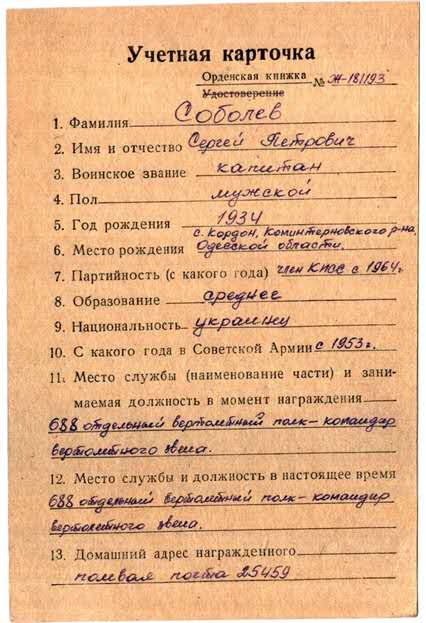 Учетная карточка
Орденская книжка № Ж-181193
Удостоверение
1. Фамилия Соболев
2. Имя и отчество Сергей Петрович
3. Воинское звание капитан
4. Пол мужской
5. Год рождения 1934
с. Кордон, Коминтерновского р-на,
6. Место рождения Одесской области.
7. Партийность (с какого года) член КПСС с 1964г.
8. Образование среднее
9. Национальность украинец
10. С какого года в Советской Армии с 1953г.
11. Место службы (наименование части) и зани-
маемая должность в момент награждения
688 отдельный вертолетный полк – командир
вертолетного звена.
12. Место службы и должность в настоящее время
688 отдельный вертолетный полк – командир
вертолетного звена.
13. Домашний адрес награжденного
полевая почта 25459